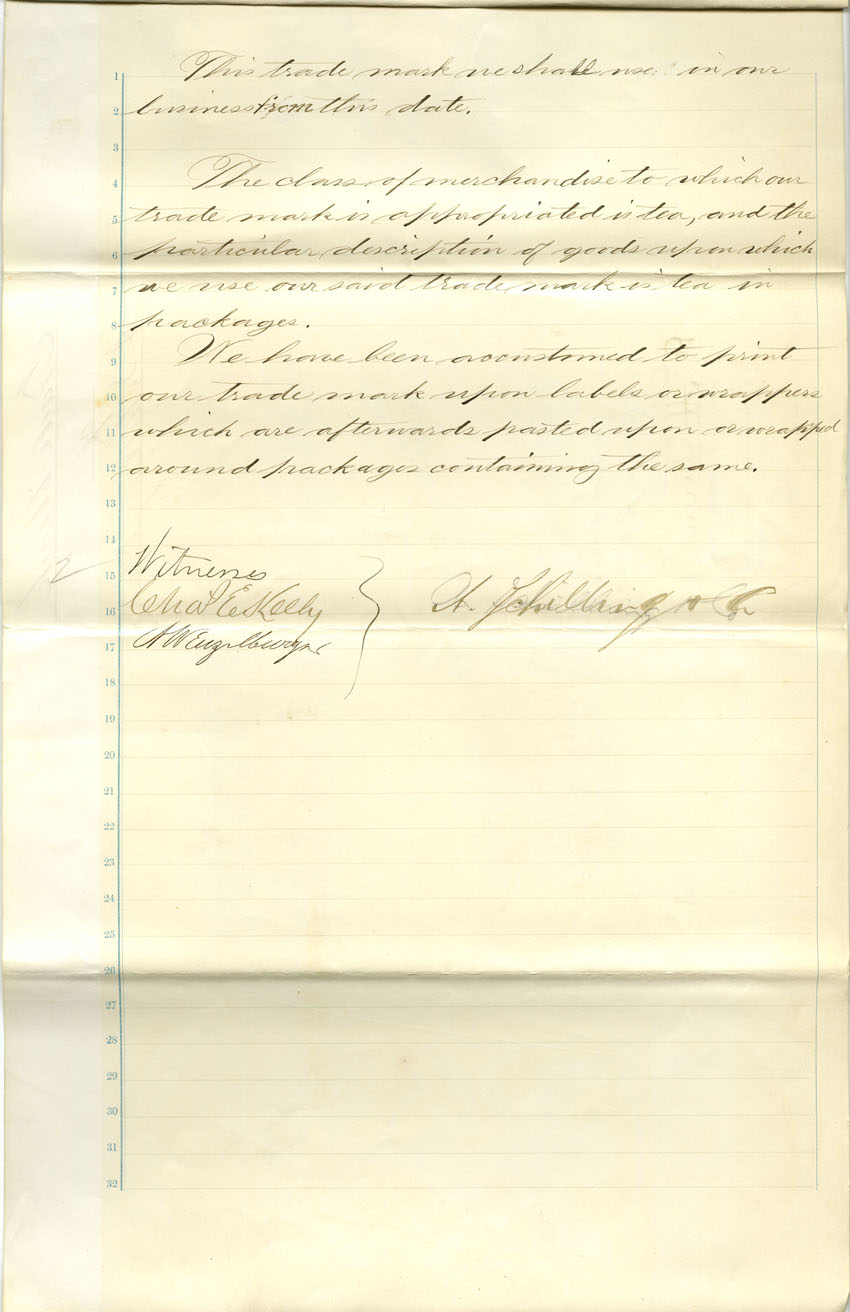 1 This trade mark we shall use in our
2 business from this date.
3
4 The class of merchandise to which our
5 trade mark is appropriated is tea, and the
6 particular description of goods upon which
7 we use our said trade mark is tea in
8 packages.
9 We have been accustomed to print
10 our trade mark upon labels or wrappers
11 which are afterwards pasted upon or wrapped
12 around packages containing the same.
13
14
15 Witnesses
16 Chas E Kelly A. Schilling & Co
17
18
19
20
21
22
23
24
25
26
27
28
29
30
31
32